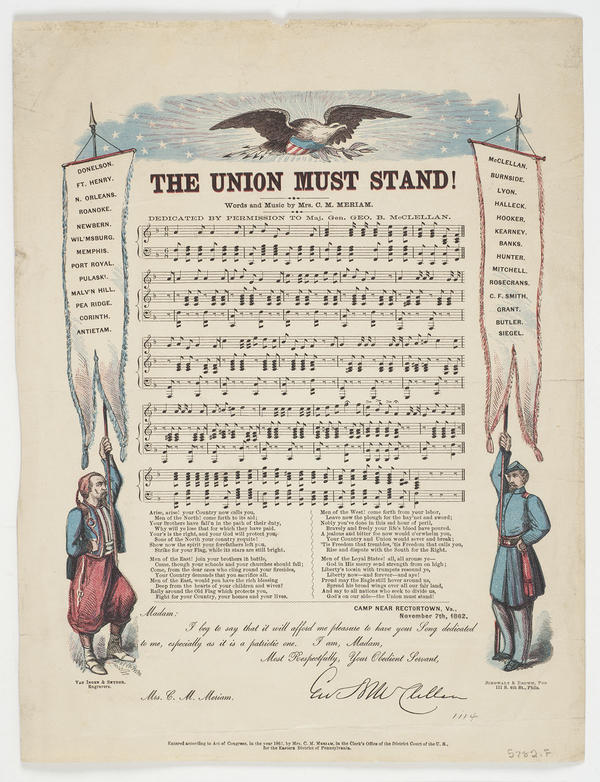 THE UNION MUST STAND!
Words and Music by Mrs. C. M. MERIAM.
DEDICATED BY PERMISSION TO Maj. Gen. GEO. B. McCLELLAN.
DONELSON.
FT. HENRY.
N. ORLEANS.
ROANOKE.
NEWBERN.
WIL'MSBURG.
MEMPHIS.
PORT ROYAL.
PULASKI.
MALV'N HILL.
PEA RIDGE.
CORINTH.
ANTIETAM.
McCLELLAN.
BURNSIDE.
LYON.
HALLECK.
HOOKER.
KEARNEY.
BANKS.
HUNTER.
MITCHELL.
ROSECRANS.
C. F. SMITH.
GRANT.
BUTLER.
SIEGEL.
Arise, arise! your Country now calls you,
Men of the North! come forth to its aid;
Your Brothers have fall'n in the path of their duty,
Why will ye lose that for which they have paid.
Your's is the right, and your God will protect you;
Sons of the North your country uphold!
Show now the spirit your forefathers left you,
Strike for your Flag, while its stars are still bright.
Men of the East! join your brothers in battle,
Come, though your schools and your churches should fall;
Come, from the dear ones who cling round your firesides,
Your Country demands that you sacrifice all.
Men of the East, would you have the rich blessing
Deep from the hearts of your children and wives?
Rally around the Old Flag which protects you,
Fight for your Country, your homes and your lives.
Men of the West! come forth from your labor,
Leave now the plough for the bay'net and sword;
Nobly you've done in this sad hour of peril,
Bravely and freely your life's blood have poured.
A jealous and bitter foe now would o'erwhelm you,
Your Country and Union would sever and break;
'Tis Freedom that troubles, 'tis Freedom that calls you,
Rise and dispute with the South for the Right.
Men of the Loyal States! all, all arouse ye—
God in His mercy send strength from on high;
Liberty's tocsin with trumpets resound ye,
Liberty now—and forever—and aye!
Proud may the Eagle still hover around us,
Spread his broad wings over all our fair land,
And say to all nations who seek to divide us,
God's on our side—the Union must stand!
CAMP NEAR RECTORTOWN, Va.,
November 7th, 1862.
Madam:
I beg to say that it will afford me pleasure to have your Song dedicated
to me, especially as it is a patriotic one. I am, Madam,
Most Respectfully, Your Obedient Servant,
Geo B McClellan
Mrs. C. M. Meriam.
1114
Van Ingen & Snyder,
Engravers.
Ringwalt & Brown, Pro
111 S. 4th St., Phila.
Entered according to Act of Congress, in the year 1862, by Mrs. C. M. Meriam, in the Clerk's Office of the District Court of the U. S.,
for the Eastern District of Pennsylvania.
5782.F